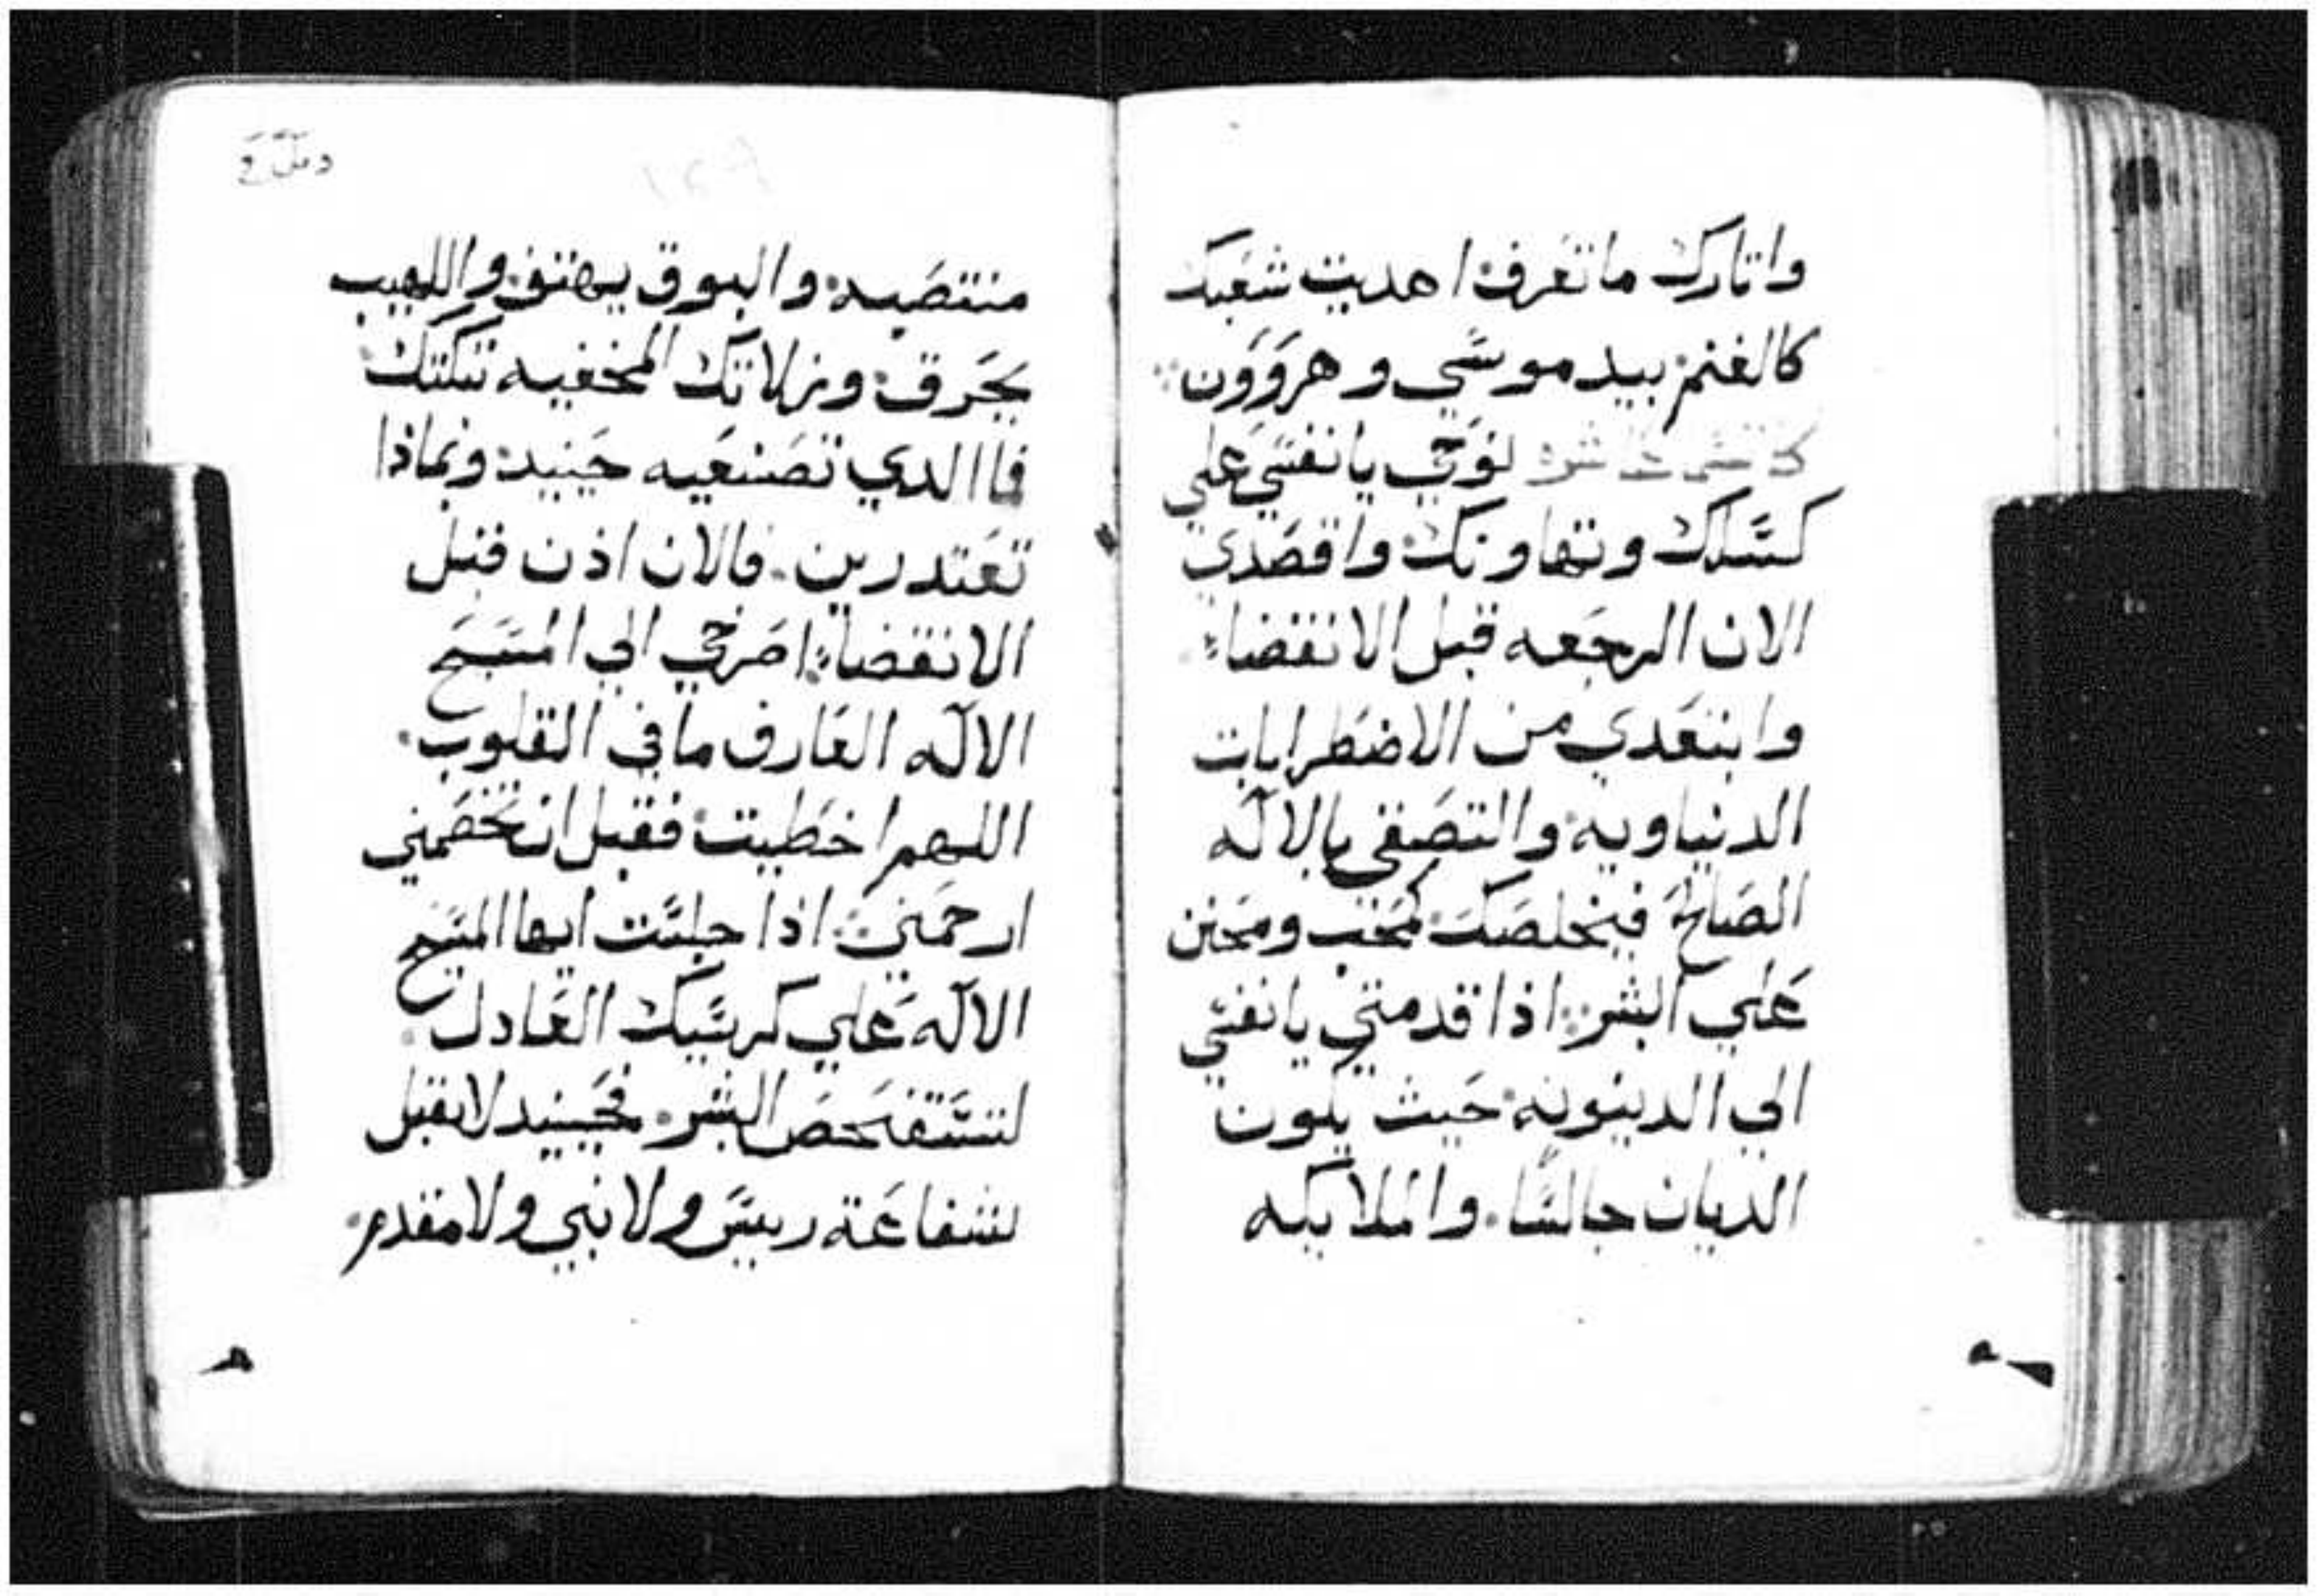 واتارك ما تعرف: اهديت شعبك
كالغنم بيد موسي وهروون:
نوحي يا نفسي علي
كسلك وتهاونك: واقصدي
الان الرجعه قبل الانقضاء:
وابتعدي من الاضطرابات
الدنياويه: والتصقي بالاله
الصالح فيخلصك: كمحب ومحنن
علي البشر: اذا قدمتي يا نفسي
الي الدينونه: حيث يكون
الديان جالسًا. والملايكه
منتصبه: والبوق يهتف: واللهيب
يحرق: وزلاتك المخفيه تبكتك:
فما الدي تصنعيه حينيد: وبماذا
تعتدرين. فالان اذن قبل
الانقضاء: اصرخي الي المسيح
الاله العارف ما في القلوب.
اللهم اخطيت: فقبل ان تخصمني
ارحمني: اذا جلست ايها المسيح
الاله علي كرسيك العادل.
لتستفحص البشر. فحينيد لا تقبل
شفاعة رييس ولا نبي ولا مقدم.